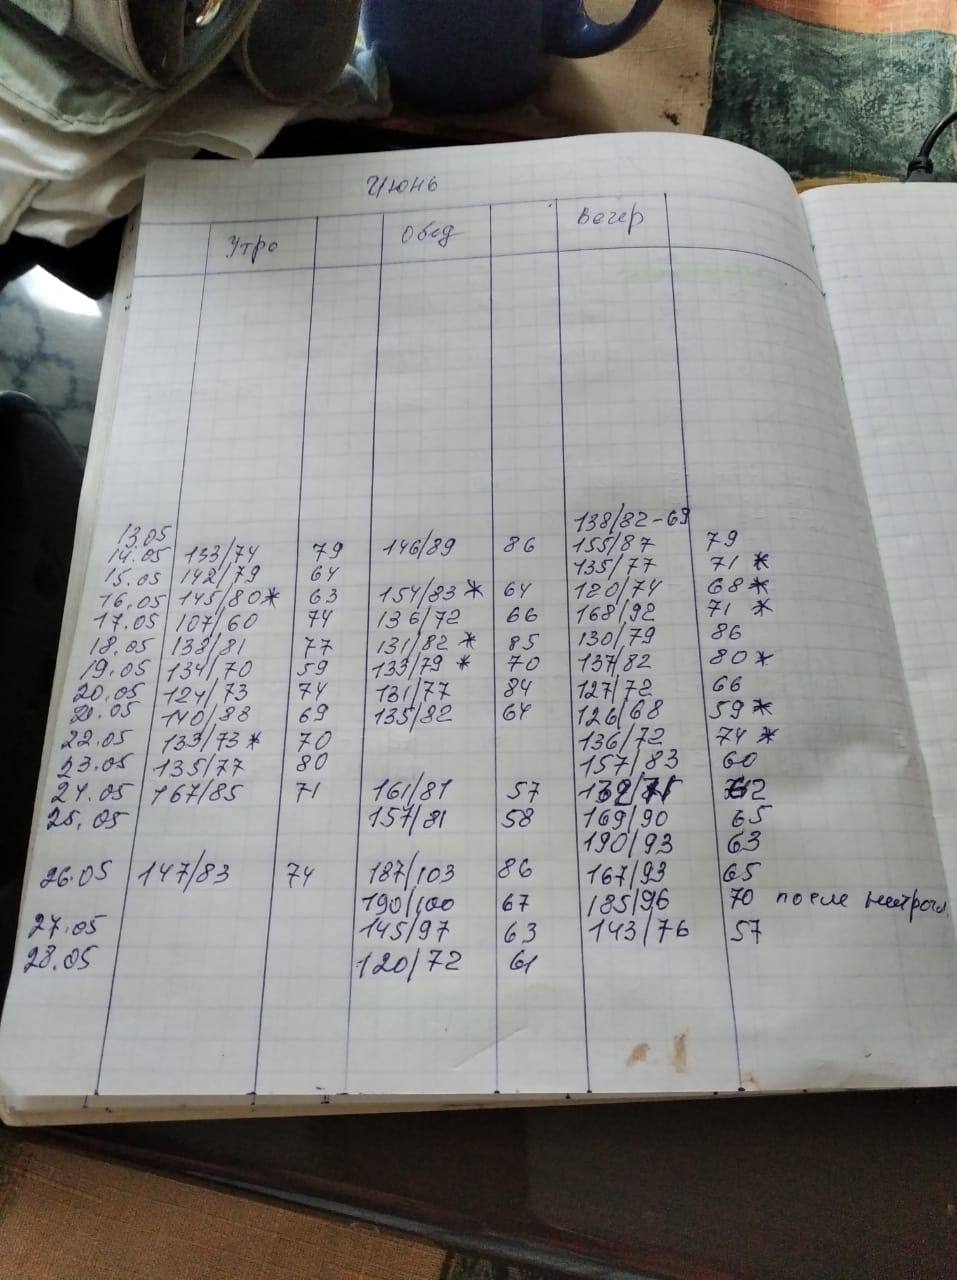 Июнь
Утро Обед Вечер
13.05 138/82-69
14.05 133/74 79 146/89 86 155/87 79
15.05 142/79 64 135/77 71 *
16.05 145/80* 63 154/83 * 64 120/74 68 *
17.05 107/60 74 136/72 66 168/92 71 *
18.05 138/81 77 131/82 * 85 130/79 86
19.05 134/70 59 133/79 * 70 137/82 80 *
20.05 124/73 74 131/77 84 127/72 66
140/88 69 135/82 64 126/68 59 *
22.05 133/73 * 70 136/72 74 *
23.05 135/77 80 157/83 60
24.05 167/85 71 161/81 57
25.05 157/81 58 169/90 65
190/93 63
26.05 147/83 74 187/103 86 167/93 65
190/100 67 185/96 70 после нитрогл
27.05 145/97 63 143/76 57
28.05 120/72 61